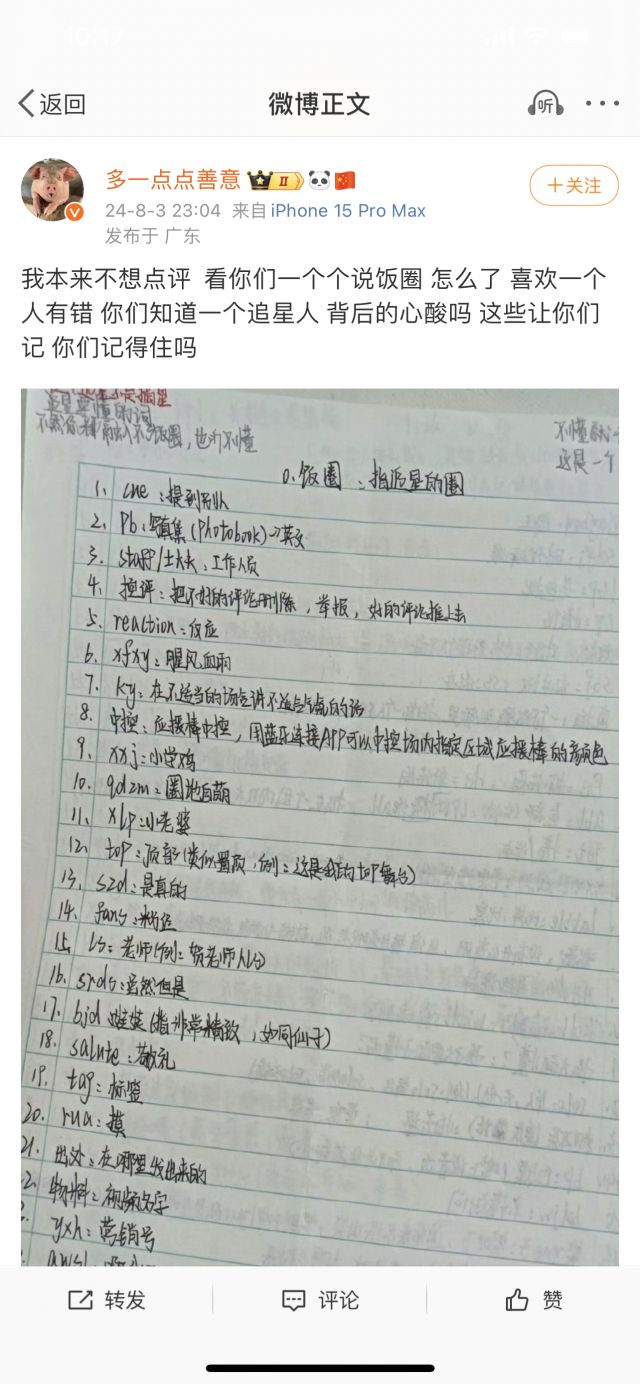 10:17
返回
微博正文
听
多一点点善意
II
24-8-3 23:04 来自 iPhone 15 Pro Max
发布于 广东
+关注
我本来不想点评 看你们一个个说饭圈 怎么了 喜欢一个
人有错 你们知道一个追星人 背后的心酸吗 这些让你们
记 你们记得住吗
追星要懂的词
不然你都融入不了饭圈,也听不懂
不懂
这是一个
0.饭圈:指追星的圈
1. cue:提到别人
2. Pb:写真集(Photobook)→英文
3. staff/士大夫:工作人员
4. 控评:把不好的评论删除,举报,好的评论推上去
5. reaction:反应
6. xfxy:腥风血雨
7. ky:在不适当的场合讲不适合气氛的话
8. 中控:应援棒中控,用蓝牙连接APP可以中控场内指定区域应援棒的颜色
9. xxj:小学鸡
10. qdzm:圈地自萌
11. xlp:小老婆
12. top:顶部(类似置顶,例:这是我的top舞台)
13. szd:是真的
14. fans:粉丝
15. ls:老师(例:贺老师人ls)
16. srds:虽然但是
17. bjd 娃娃(指非常精致,如同仙子)
18. salute:敬礼
19. tag:标签
20. rua:摸
21. 出处:在哪里发出来的
物料:视频文字
yxh:营销号
awsl:
转发
评论
赞